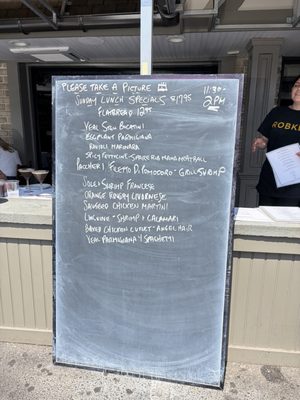 PLEASE TAKE A PICTURE
SUNDAY LUNCH SPECIALS $1795 11:30-2PM
FLATBREAD 1295
VEAL STEW BUCATINI
EGGPLANT PARMIGIANA
RAVIOLI MARINARA
SPICY FETTUCINE - SAUSAGE RAGU MAMA MEATBALL
PACCHERI FILETTO DI POMODORO - GRILL SHRIMP
SOLE & SHRIMP FRANCESE
ORANGE ROUGHY LIVORNESE
SAUTEED CHICKEN MARTINI
LINGUINE - SHRIMP & CALAMARI
BAKED CHICKEN CUTLET - ANGEL HAIR
VEAL PARMIGIANA & SPAGHETTI
ROBKE